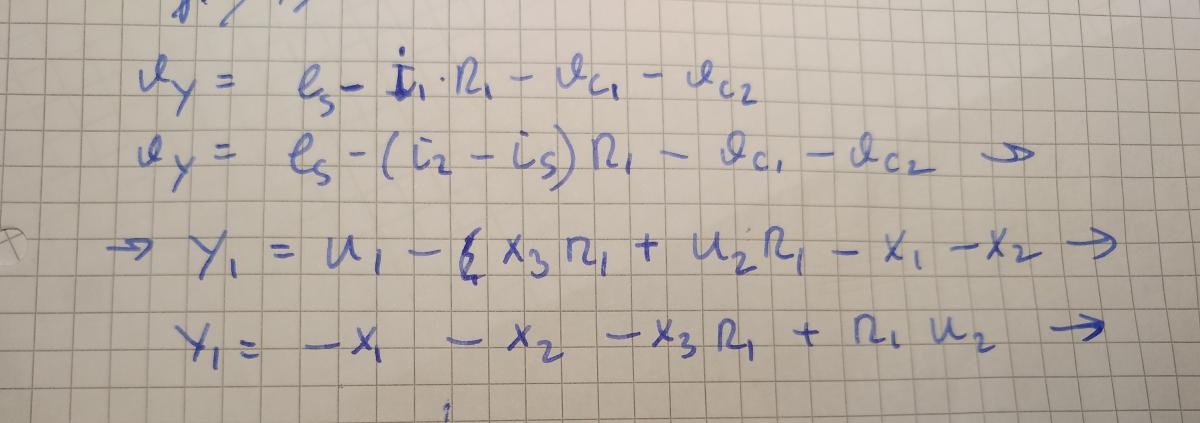 υ_y = e_s - i_1 · R_1 - υ_c1 - υ_c2
υ_y = e_s - (i_2 - i_s) R_1 - υ_c1 - υ_c2 →
→ Y_1 = u_1 - x_3 R_1 + u_2 R_1 - x_1 - x_2 →
Y_1 = - x_1 - x_2 - x_3 R_1 + R_1 u_2 →